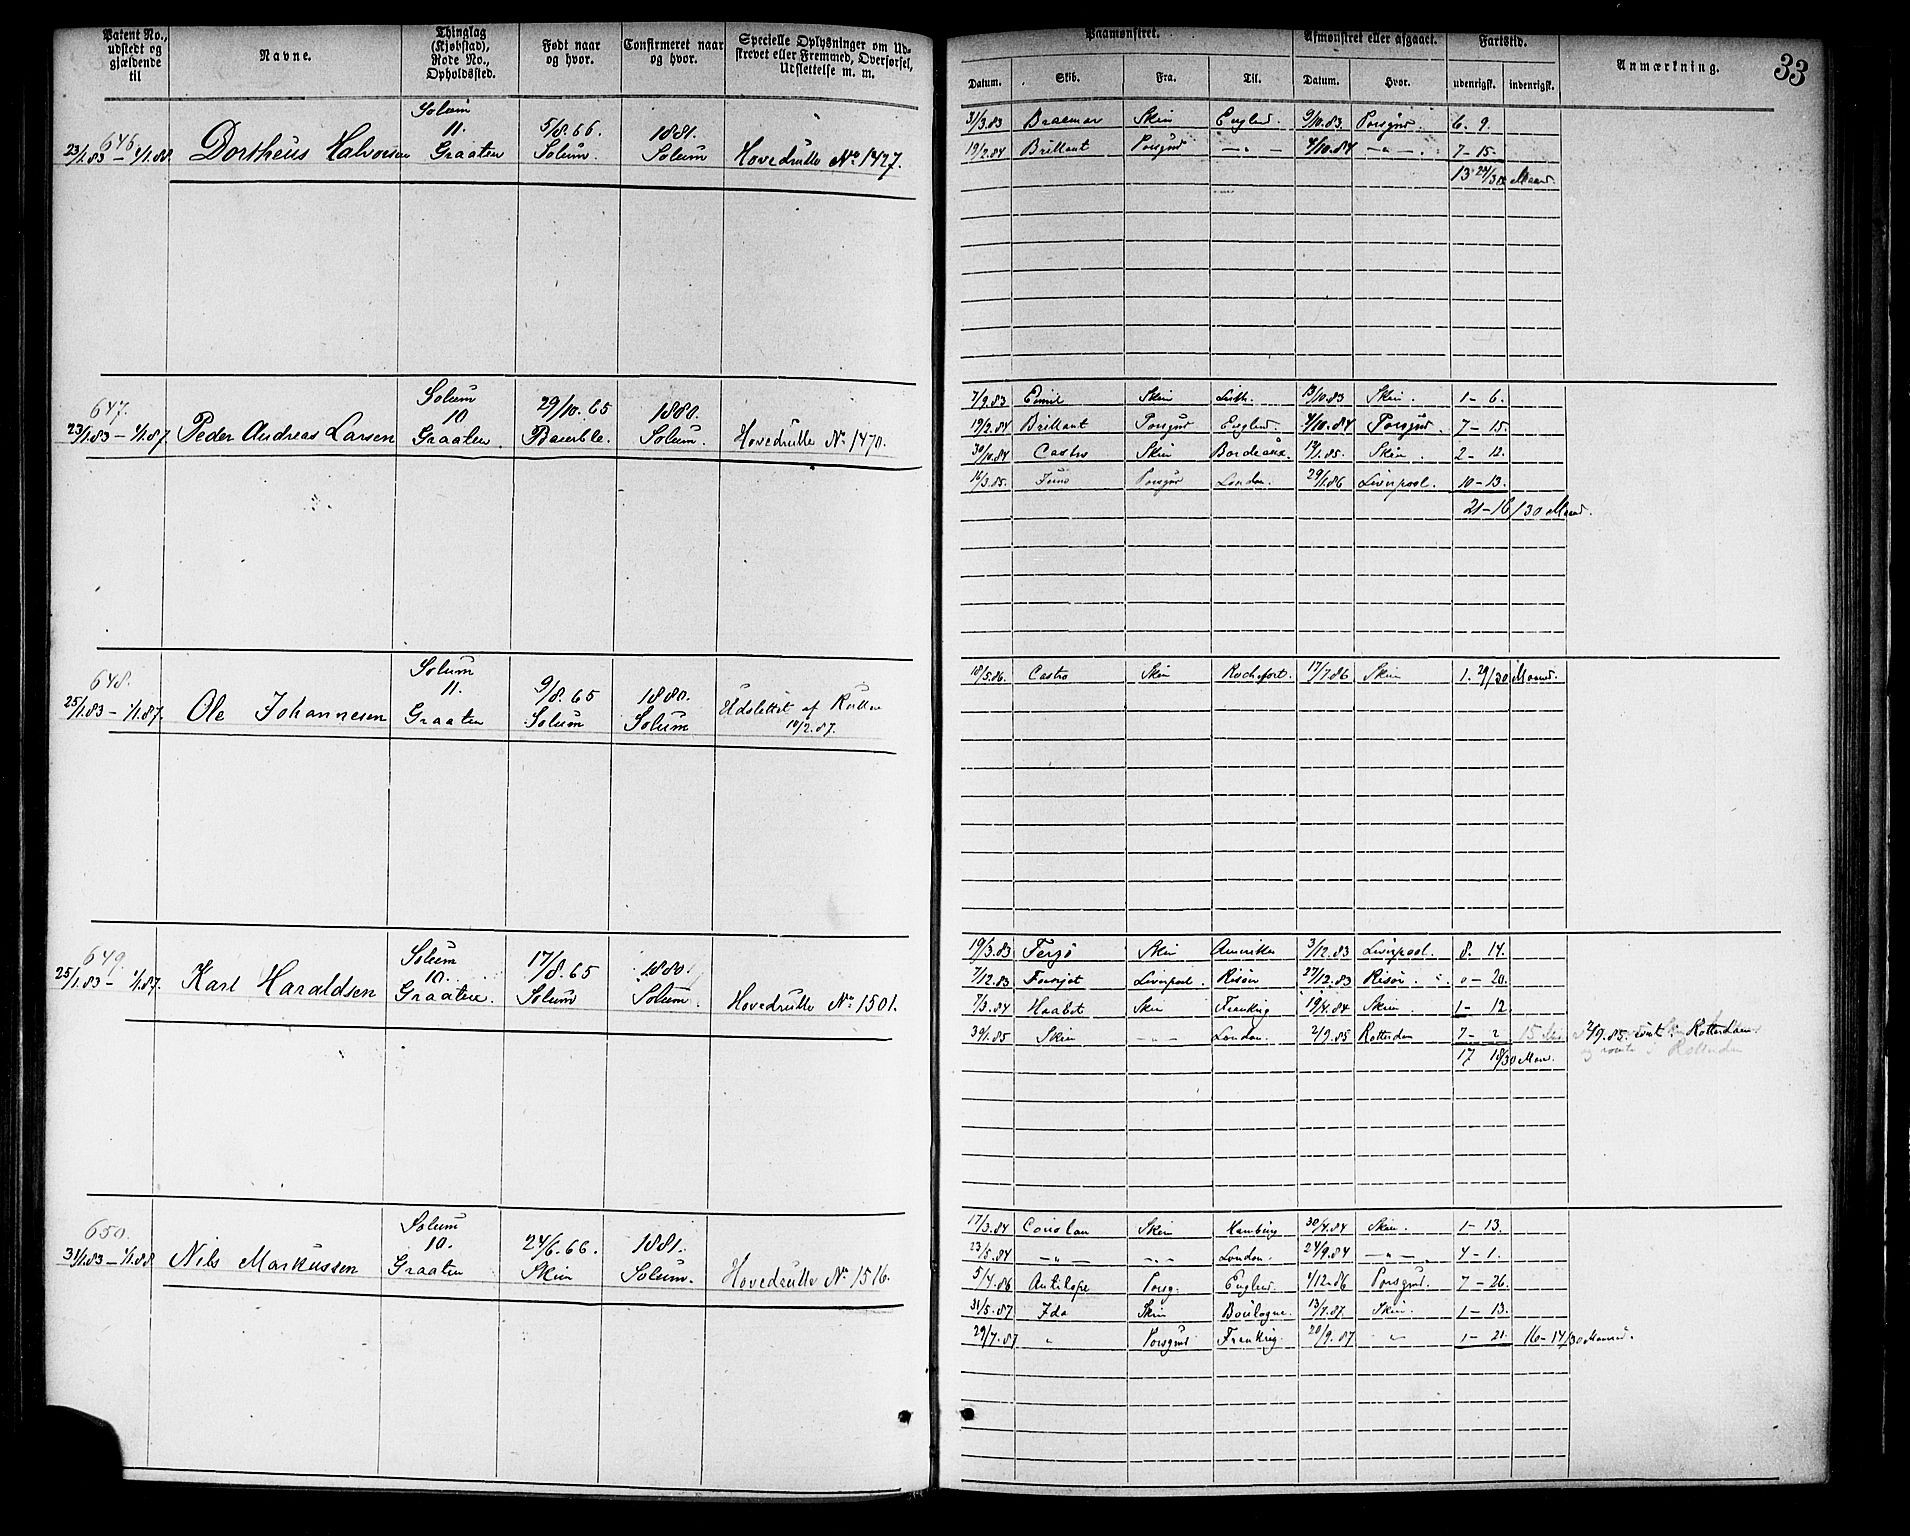 Patent No., udstedt og gjældende til
Navne.
Thinglag (Kjøbstad), Rode No., Opholdssted.
Født naar og hvor.
Confirmeret naar og hvor.
Specielle Oplysninger om Udskrevet eller Fremmed, Overførsel, Udslettelse m. m.
Paamønstret.
Afmønstret eller afgaaet.
Fartstid.
Anmærkning.
33
Datum. Skib. Fra. Til. Datum. Hvor. udenrigsk. indenrigsk.
646.
23/1.83 – 1/1.88
Dortheus Halvorsen
Solum
11.
Graaten
5/8.66.
Solum.
1881.
Solum
Hovedrulle No 1427.
31/3.83 Braemar Skien Engld. 9/10.83. Porsgrd. 6. 9.
19/2.84 Brillant Porsgrd – „ – 4/10.84 – „ – 7 – 15.
13 24/30 Maand.
647.
23/1.83 – 1/1.87.
Peder Andreas Larsen
Solum
10
Graaten.
29/10.65
Bamble.
1880.
Solum.
Hovedrulle No 1470.
7/9.83 Emil Skien Leith. 13/10.83 Skien. 1 – 6.
19/2.84 Brillant Porsgrd Engld. 4/10.84 Porsgrd. 7 – 15.
30/10.84 Castro Skien Bordeaux. 12/1.85. Skien. 2 – 12.
16/3.85. Juno Porsgrd London. 29/1.86 Liverpool. 10 – 13.
21 – 16/30 Maand.
648.
25/1.83 – 1/1.87.
Ole Johannesen
Solum
11.
Graaten
9/8.65
Solum
1880.
Solum
Udslettet af Rullen
10/2.87.
18/5.86. Castro Skien Rochefort. 17/7.86 Skien 1. 29/30 Maand.
649.
25/1.83 – 1/1.87.
Karl Haraldsen
Solum
10.
Graaten.
17/8.65
Solum
1880.
Solum.
Hovedrulle No 1501.
19/3.83 Ferjö Skien Amerika 3/12.83 Liverpool. 8. 14.
7/12.83 Liverpool. Risör 27/12.83 Risör. 0 – 20.
7/3.84 Haabet Skien Frankrig 19/4.84 Skien. 1 – 12.
30/1.85 Skien – „ – London. 2/9.85 Rotterdam 7 – 2 2/9.85. rømt Rotterdam
17 18/30 Maan.
650.
31/1.83 – 1/1.88
Nils Markussen
Solum
10.
Graaten
24/6.66.
Skien
1881.
Solum.
Hovedrulle No 1516.
17/3.84 Coriolan Skien Hamburg 30/4.84 Skien. 1 – 13.
23/5.84 – „ – – „ – London. 24/9.84 – „ – 4 – 1.
5/4.86 Antilope Porsg. Engld. 1/12.86 Porsgrd. 7 – 26.
31/5.87 Ida Skien Boulogne. 13/7.87. Skien. 1 – 13.
29/7.87 „ Porsgrd Frankrig. 20/9.87 „ 1 – 21. 16 – 14/30 Maaned.